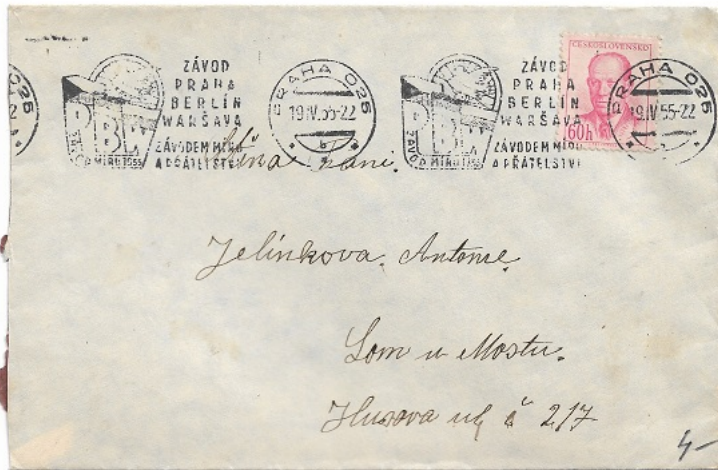 ZÁVOD
PRAHA
BERLÍN
WARŠAVA
ZÁVODEM MÍRU
A PŘÁTELSTVÍ
PBW
ZÁVOD MÍRU 1955
PRAHA 025
19.IV.55-22
b
ZÁVOD
PRAHA
BERLÍN
WARŠAVA
ZÁVODEM MÍRU
A PŘÁTELSTVÍ
ZÁVOD MÍRU 1955
ČESKOSLOVENSKO
60h
PRAHA 025
19.IV.55-22
paní.
Jelínkova. Antonie.
Lom u Mostu.
Husova ul č 217
4-